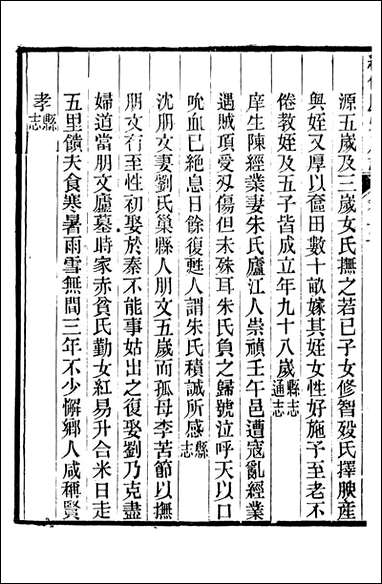 源五歲及三歲女氏撫之若已子女修智歿氏擇腴產
與姪又厚以奩田數十畝嫁其姪女性好施予至老不
倦教姪及五子皆成立年九十八歲縣志通志
庠生陳經業妻朱氏廬江人崇禎壬午邑遭寇亂經業
遇賊項受刄傷但未殊耳朱氏負之歸號泣呼天以口
吮血已絶息日餘復甦人謂朱氏積誠所感縣志
沈朋文妻劉氏巢縣人朋文五歲而孤母李苦節以撫
朋文有至性初娶於秦不能事姑出之復娶劉乃克盡
婦道當朋文廬墓時家赤貧氏勤女紅易升合米日走
五里饋夫食寒暑雨雪無間三年不少懈鄉人咸稱賢
孝縣志